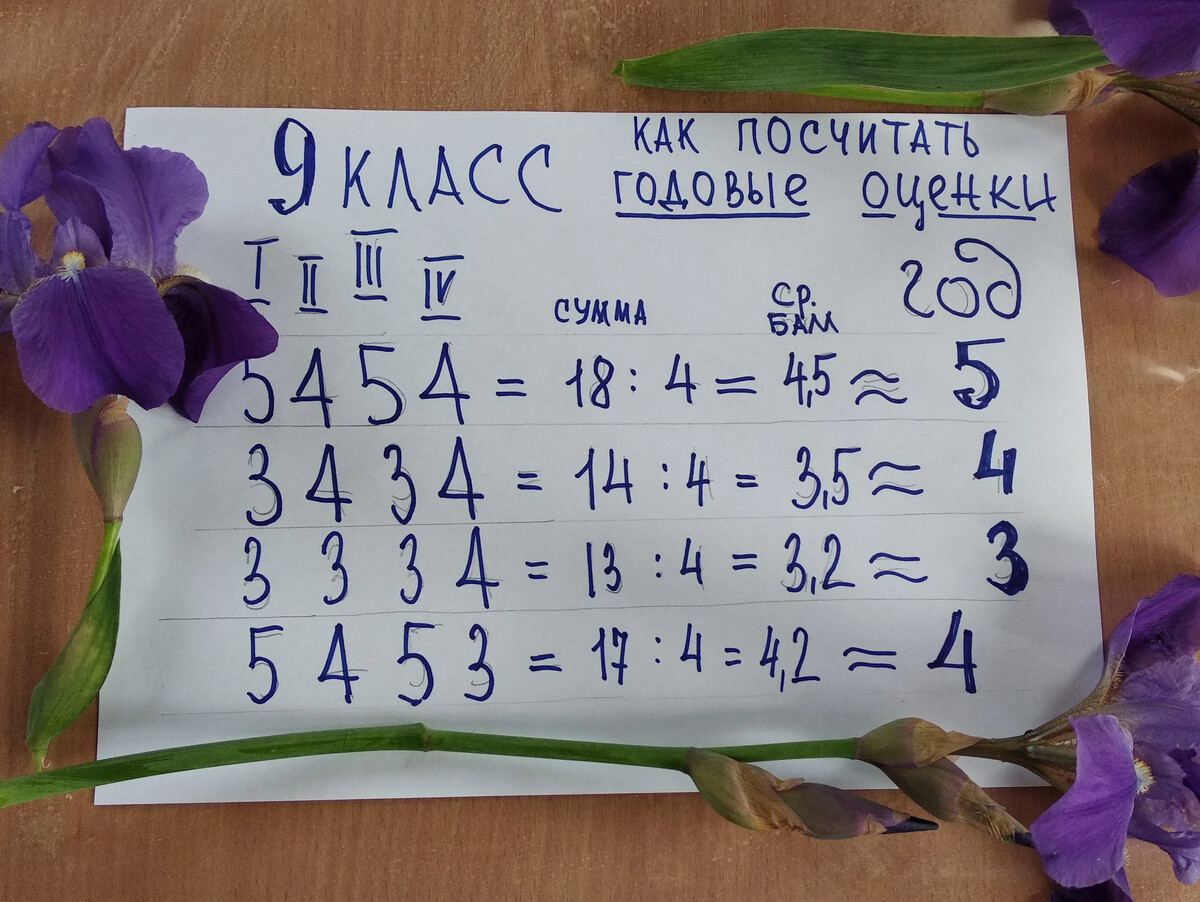 9 КЛАСС
КАК ПОСЧИТАТЬ
ГОДОВЫЕ ОЦЕНКИ
I II III IV СУММА СР. БАЛЛ ГОД
5 4 5 4 = 18 : 4 = 4,5 ≈ 5
3 4 3 4 = 14 : 4 = 3,5 ≈ 4
3 3 3 4 = 13 : 4 = 3,2 ≈ 3
5 4 5 3 = 17 : 4 = 4,2 ≈ 4